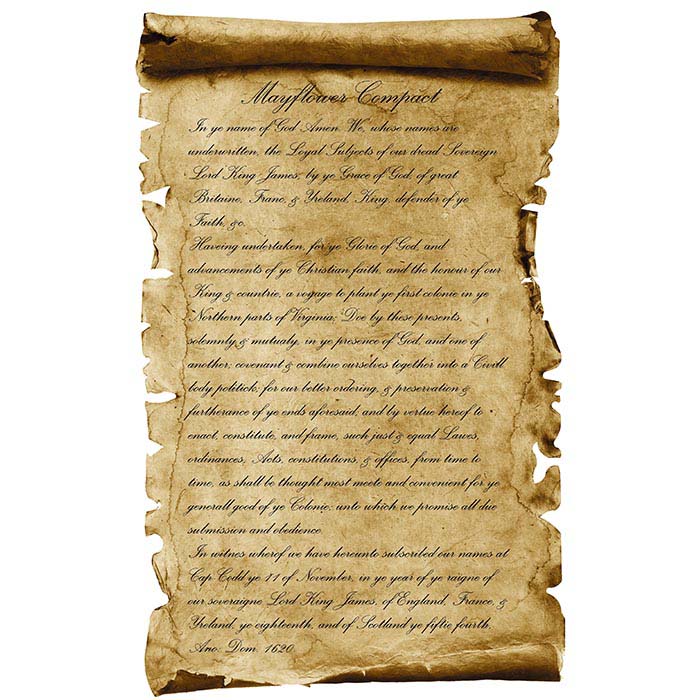 Mayflower Compact
In ye name of God Amen. We, whose names are
underwritten, the Loyal Subjects of our dread Sovereign
Lord King James, by ye Grace of God, of great
Britaine, Franc, & Yreland, King, defender of ye
Faith, &c.
Haveing undertaken, for ye Glorie of God, and
advancements of ye Christian faith, and the honour of our
King & countrie, a voyage to plant ye first colonie in ye
Northern parts of Virginia; Doe by these presents,
solemnly & mutualy, in ye presence of God, and one of
another, covenant & combine ourselves together into a Civill
body politick, for our better ordering, & preservation &
furtherance of ye ends aforesaid; and by vertue hereof to
enact, constitute, and frame, such just & equal Lawes,
ordinances, Acts, constitutions, & offices, from time to
time, as shall be thought most meete and convenient for ye
generall good of ye Colonie: unto which we promise all due
submission and obedience.
In witnes wherof we have hereunto subscribed our names at
Cap Codd ye 11 of November, in ye year of ye raigne of
our soveraigne Lord King James, of England, France, &
Yreland, ye eighteenth, and of Scotland ye fiftie fourth.
Ano: Dom. 1620